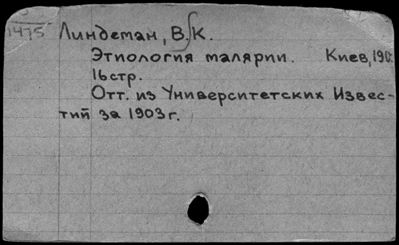 1475 Линдеман, В. К.
Этиология малярии. Киев, 190
16стр.
Отт. из Университетских Извес-
тий за 1903 г.